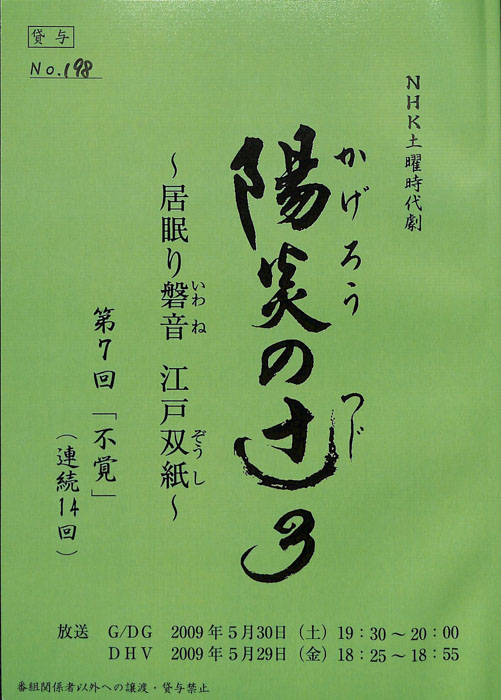 貸与
No.198
NHK土曜時代劇
かげろう つじ
陽炎の辻3
いわね ぞうし
～居眠り磐音 江戸双紙～
第7回「不覚」
(連続14回)
放送 G/DG 2009年5月30日(土)19:30～20:00
DHV 2009年5月29日(金)18:25～18:55
番組関係者以外への譲渡・貸与禁止